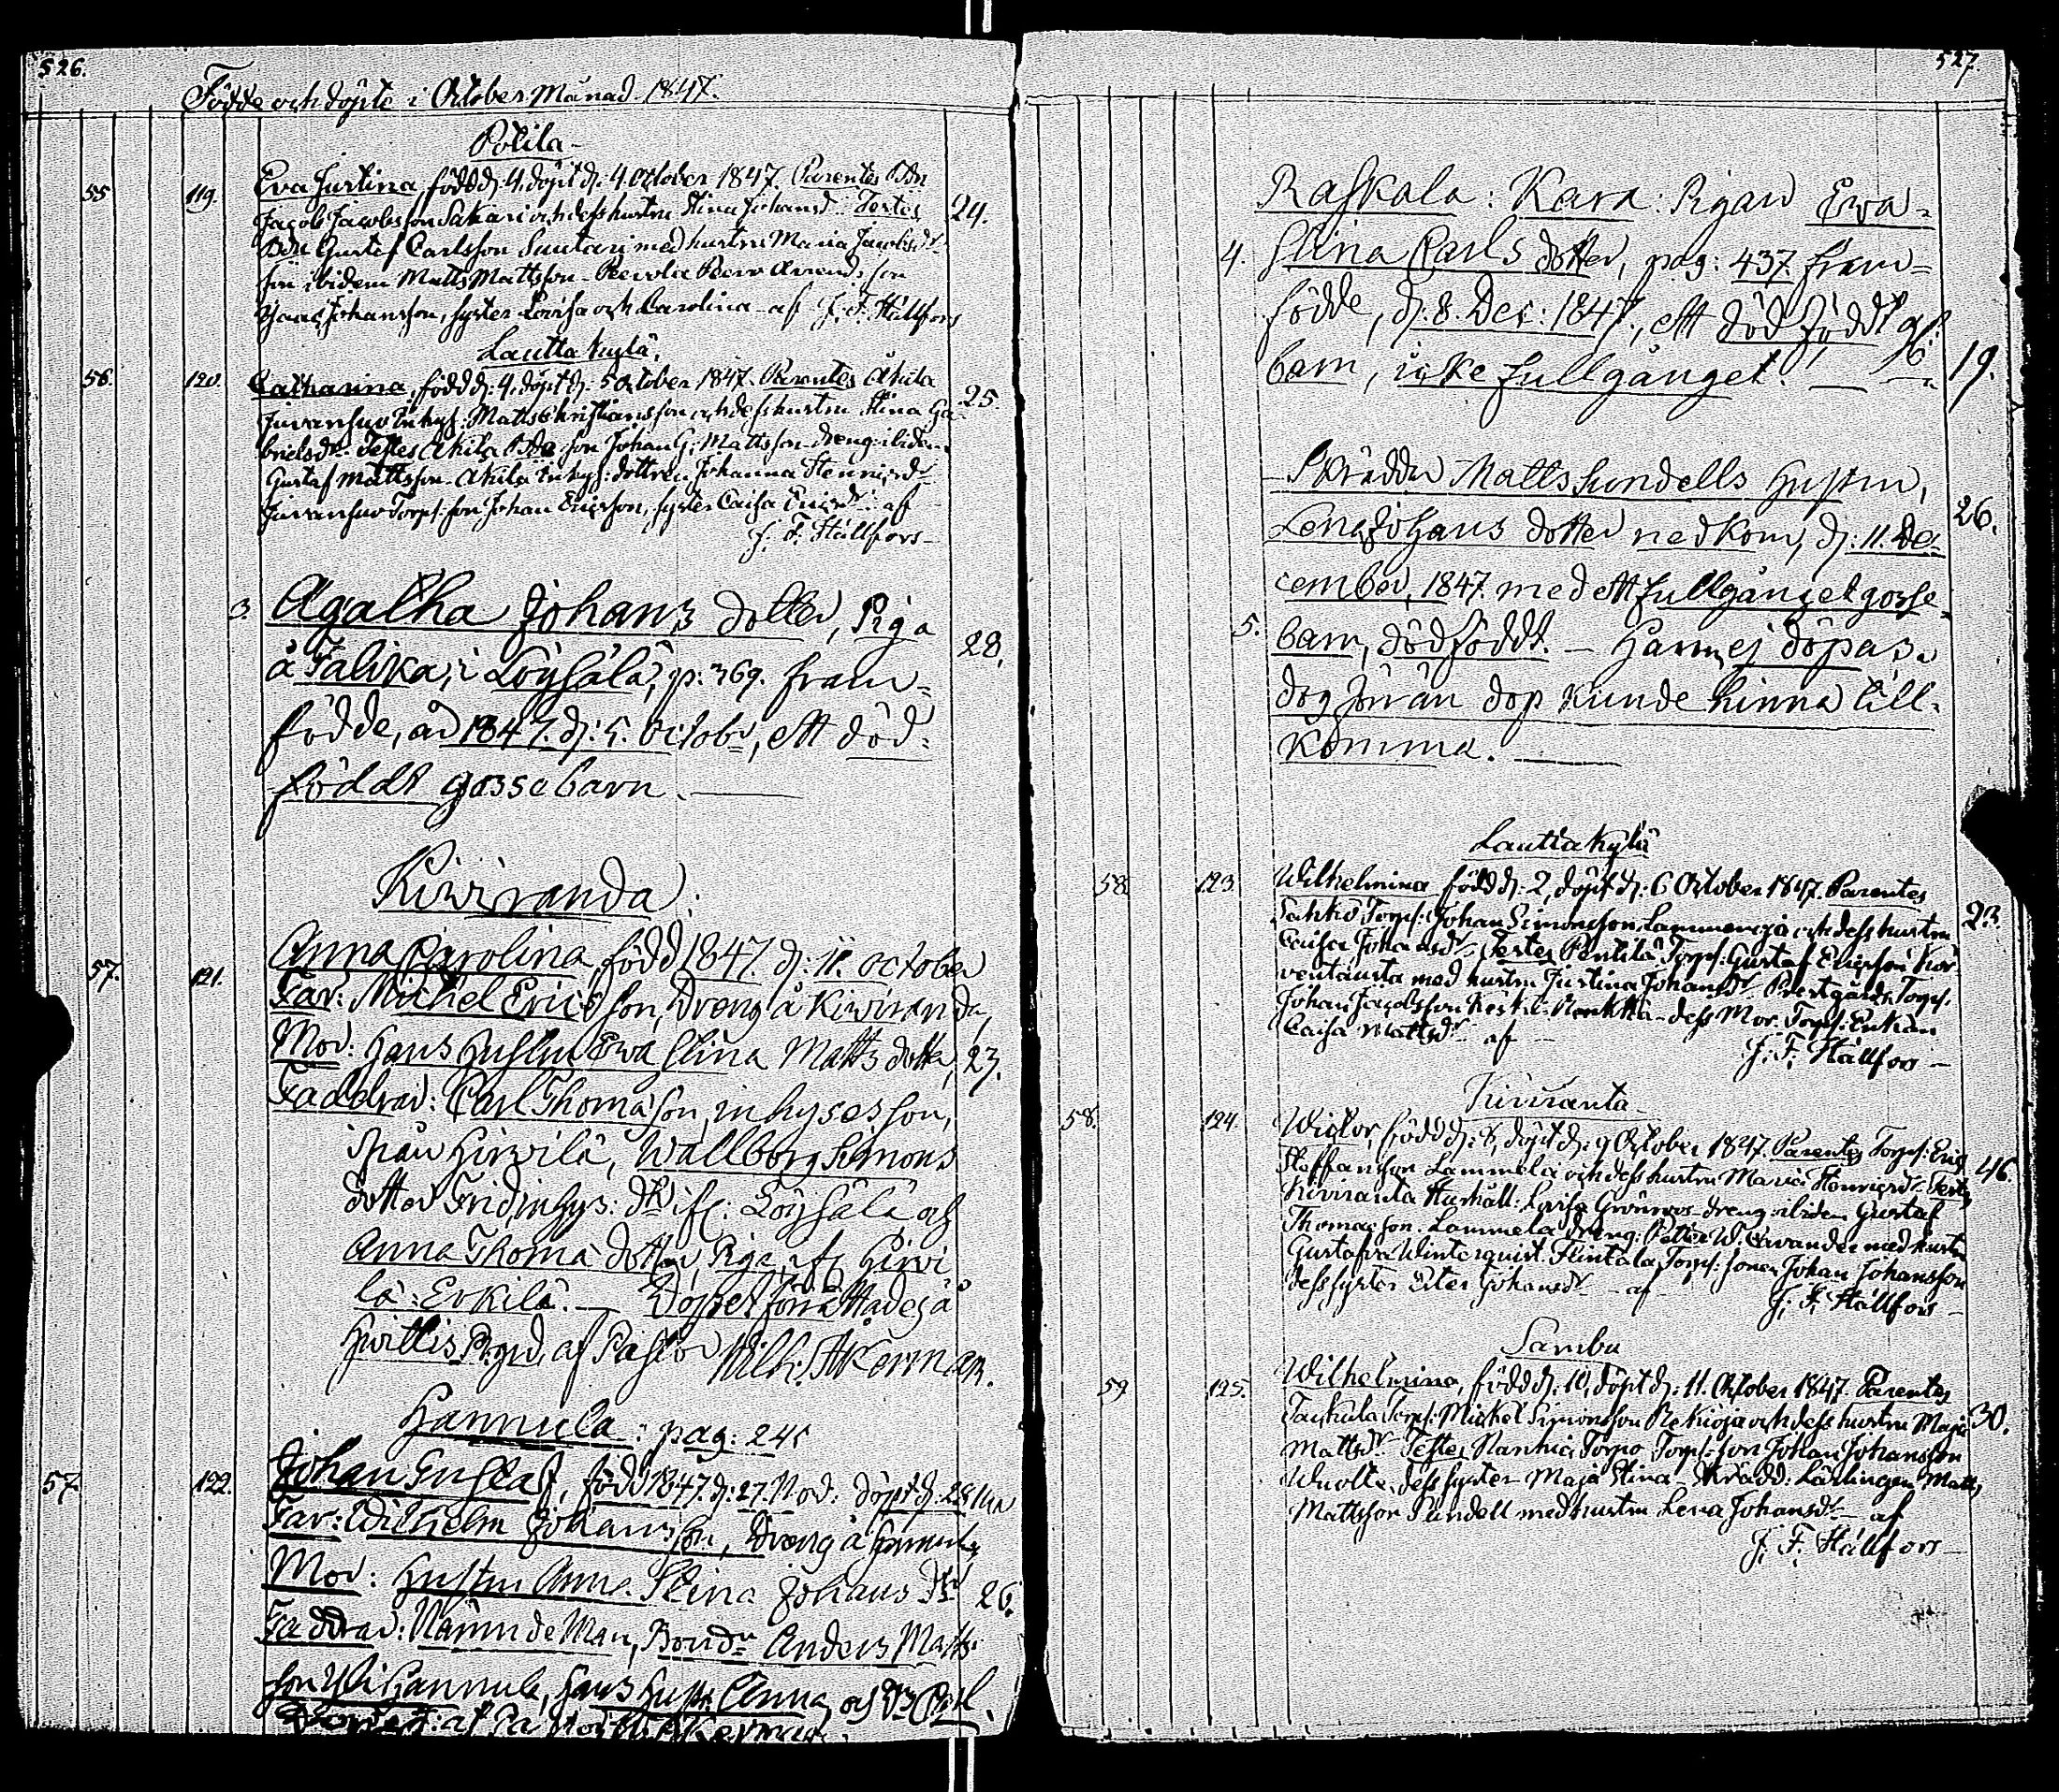 526.
Födde och döpte i October Månad 1847.
Potila
55 119. Eva Justina, född d: 4, döpt d: 4 October 1847. Parentes Bdn
Jacob Jacobsson Sakari och dess hustru Stina Johansd:r Testes 24.
Bdn Gustaf Carlsson Suutari med hustru Maria Jacobsd:r
ibidem Matts Mattsson
Isaac Johansson, syster Lovisa och Carolina - af J. F. Hällfors
Lauttakylä.
56. 120. Catharina, född d: 4, döpt d: 5 October 1847. Parentes Äkilä
Inhys: Matts Christiansson och dess hustru Stina Ga- 25.
brielsd:r Testes Äkilä Bde son Johan G: Mattsson - dreng ibidem
Gustaf Mattsson - Äkilä Inhys: dottren Johanna Henricsd:r
Torp: son Johan Ericsson, syster Caisa Ericsd:r - af
J. F. Hällfors -
3. Agatha Johans dotter, Piga
å Talika, i Löysälä, p: 369. fram- 28.
födde, år 1847. d: 5. octobr, ett död-
föddt gossebarn. —
Kiviranda.
57. 121. Anna Carolina, född 1847. d: 11. october
Far: Michel Ericsson, Dreng å Kiviranda,
Mor: Hans Hustru Ewa Stina Matts dotter, 23.
Faddrar: Carl Thomasson, inhyses son,
ifrån Hirvilä, Wallborg Simons
dotter Frid, inhys: dtr if: Löysälä och
Anna Thomas dotter, Piga, if: Hirvi
lä: Erkilä. — Döpt förrättades å
Hvittis Pr:grd, af Pastor Wilh: Åkerman.
Hannula: pag: 245
57. 122. Johan Gustaf, född 1847. d: 27. Nov: döpt d: 28
Far: Wilhelm Johansson, Dreng å Hannula,
Mor: Hustru Anna Stina Johans dtr 26.
Faddrar: Nämndeman, Bonden Anders Matts
son Yli Hannula, hans Hust: Anna, och
af Pastor W: Åkerman.
527.
Raskala: Kara: Pigan Ewa
4. Stina Carls dotter, pag: 437. fram-
födde, d: 8. Dec: 1847., ett död föddt
barn, icke fullgånget. — 19.
Skräddar Matts Sundells Hustru,
Lena Johans dotter nedkom, d: 11. De- 26.
cember, 1847. med ett fullgånget gosse-
5. barn, dödföddt. — Hann ej döpas.
dog förr än dop kunde hinna till-
komma. —
Lauttakylä
58 123. Wilhelmina född d: 2, döpt d: 6 October 1847. Parentes
Sahko Torp: Johan Simonsson Lammenoja och dess hustru 23.
Caisa Johansd:r Testes Pentilä Torp: Gustaf Ericsson Kor-
ventausta med hustru Justina Johansd:r Prestgårds Torp:
Johan Jacobsson Keski-Ronkka - dess Mor Torp: Enkan
Caisa Mattsd:r af
J. F. Hällfors -
Kiviranta
58. 124. Wictor, född d: 8, döpt d: 9 October 1847. Parentes Torp: Eric
Staffansson Lammela och dess hustru Maria Henricsd:r Testes 46.
Kiviranta Hushåll: Lovisa Grönroos - dreng ibidem Gustaf
Thomasson. Lammela dreng: Petter W. Cavander med hustru
Gustafva Winterquist. Flintala Torp: sonen Johan Johansson
dess syster Ester Johansd:r - af
J. F. Hällfors -
Sambu
59 125. Wilhelmina, född d: 10, döpt d: 11. October 1847 Parentes
Taukula Torp: Mickel Simonsson Rekioja och dess hustru Maria 30.
Mattsd:r Testes Nanhia Torpo Torp: son Johan Johansson
Wuolte, dess syster Maja Stina - Skrädd: Lärlingen Matts
Mattsson Sundell med hustru Lena Johansd:r - af
J. F. Hällfors -